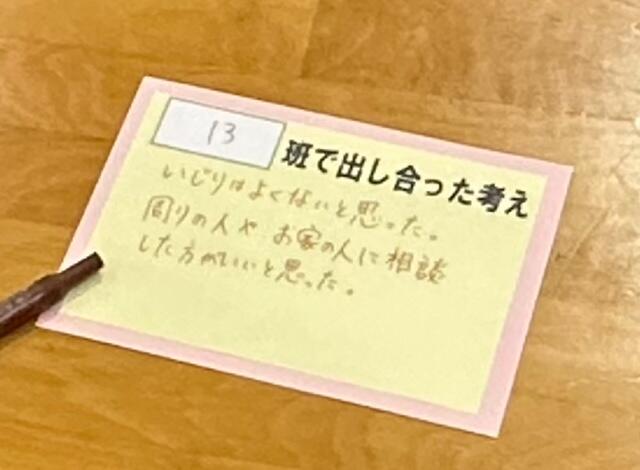 13 班で出し合った考え
いじりはよくないと思った。
周りの人や お家の人に相談
した方がいいと思った。